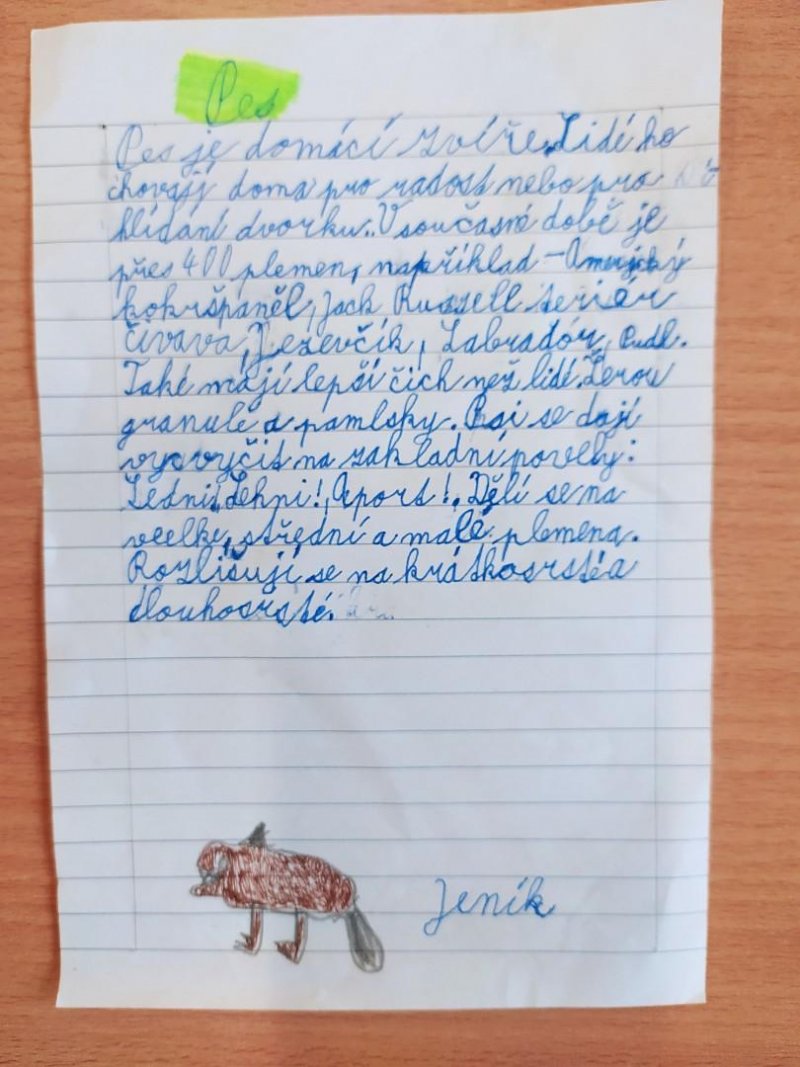 Pes
Pes je domácí zvíře. Lidé ho
chovají doma pro radost nebo pro
hlídání dvorku. V současné době je
přes 400 plemen, například – Americký
kokršpaněl, Jack Russell teriér
Čivava, Jezevčík, Labrador, Pudl.
Také mají lepší čich než lidé. Žerou
granule a pamlsky. Psi se dají
vycvyčit na zakladní povely:
Sedni!, Lehni!, Aport!. Dělí se na
veelke, střední a malé plemena.
Rozlišují se na krátkosrsté a
dlouhosrsté.
Jeník